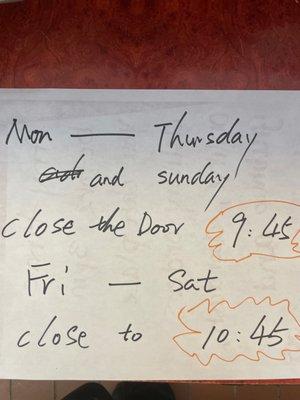 Mon — Thursday
and sunday
close the Door 9:45
Fri — Sat
close to 10:45